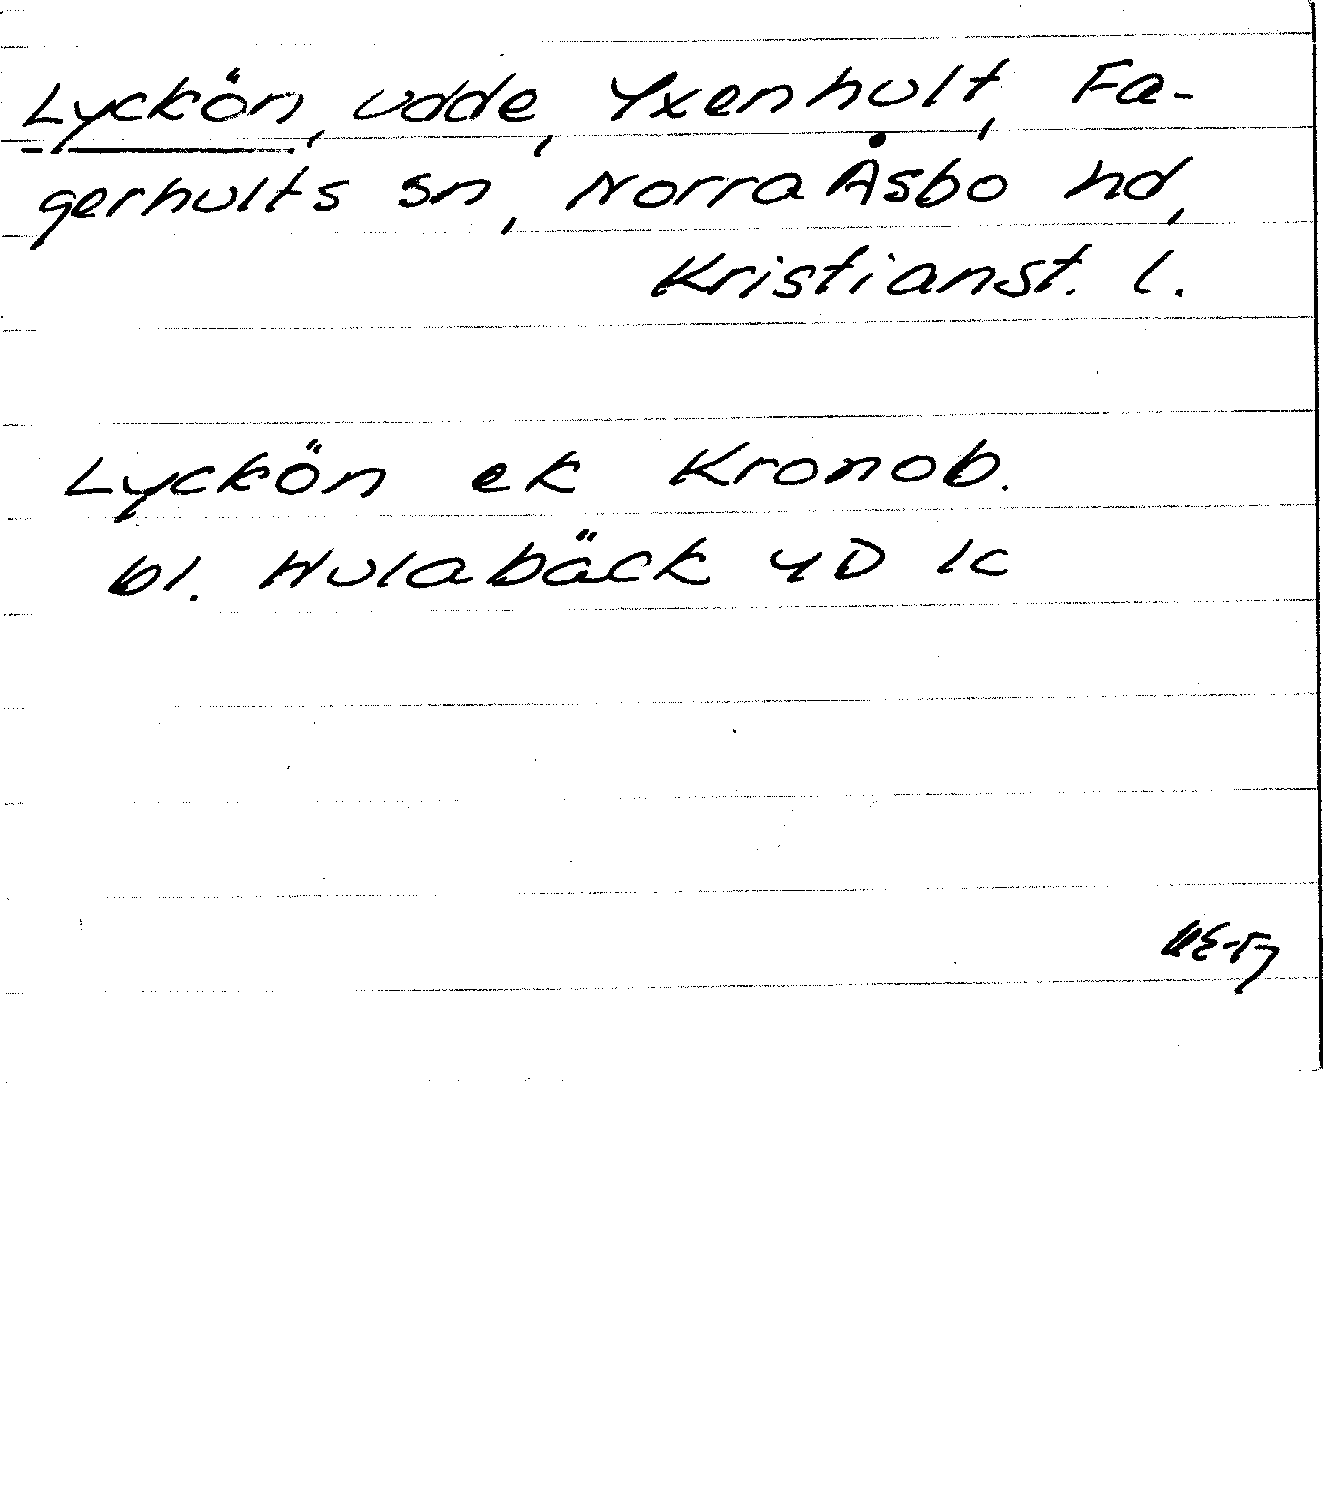 Lyckön, udde, Yxenhult, Fa-
gerhults sn, Norra Åsbo hd,
Kristianst. l.
Lyckön ek Kronob.
bl. Hulabäck 4D 1c